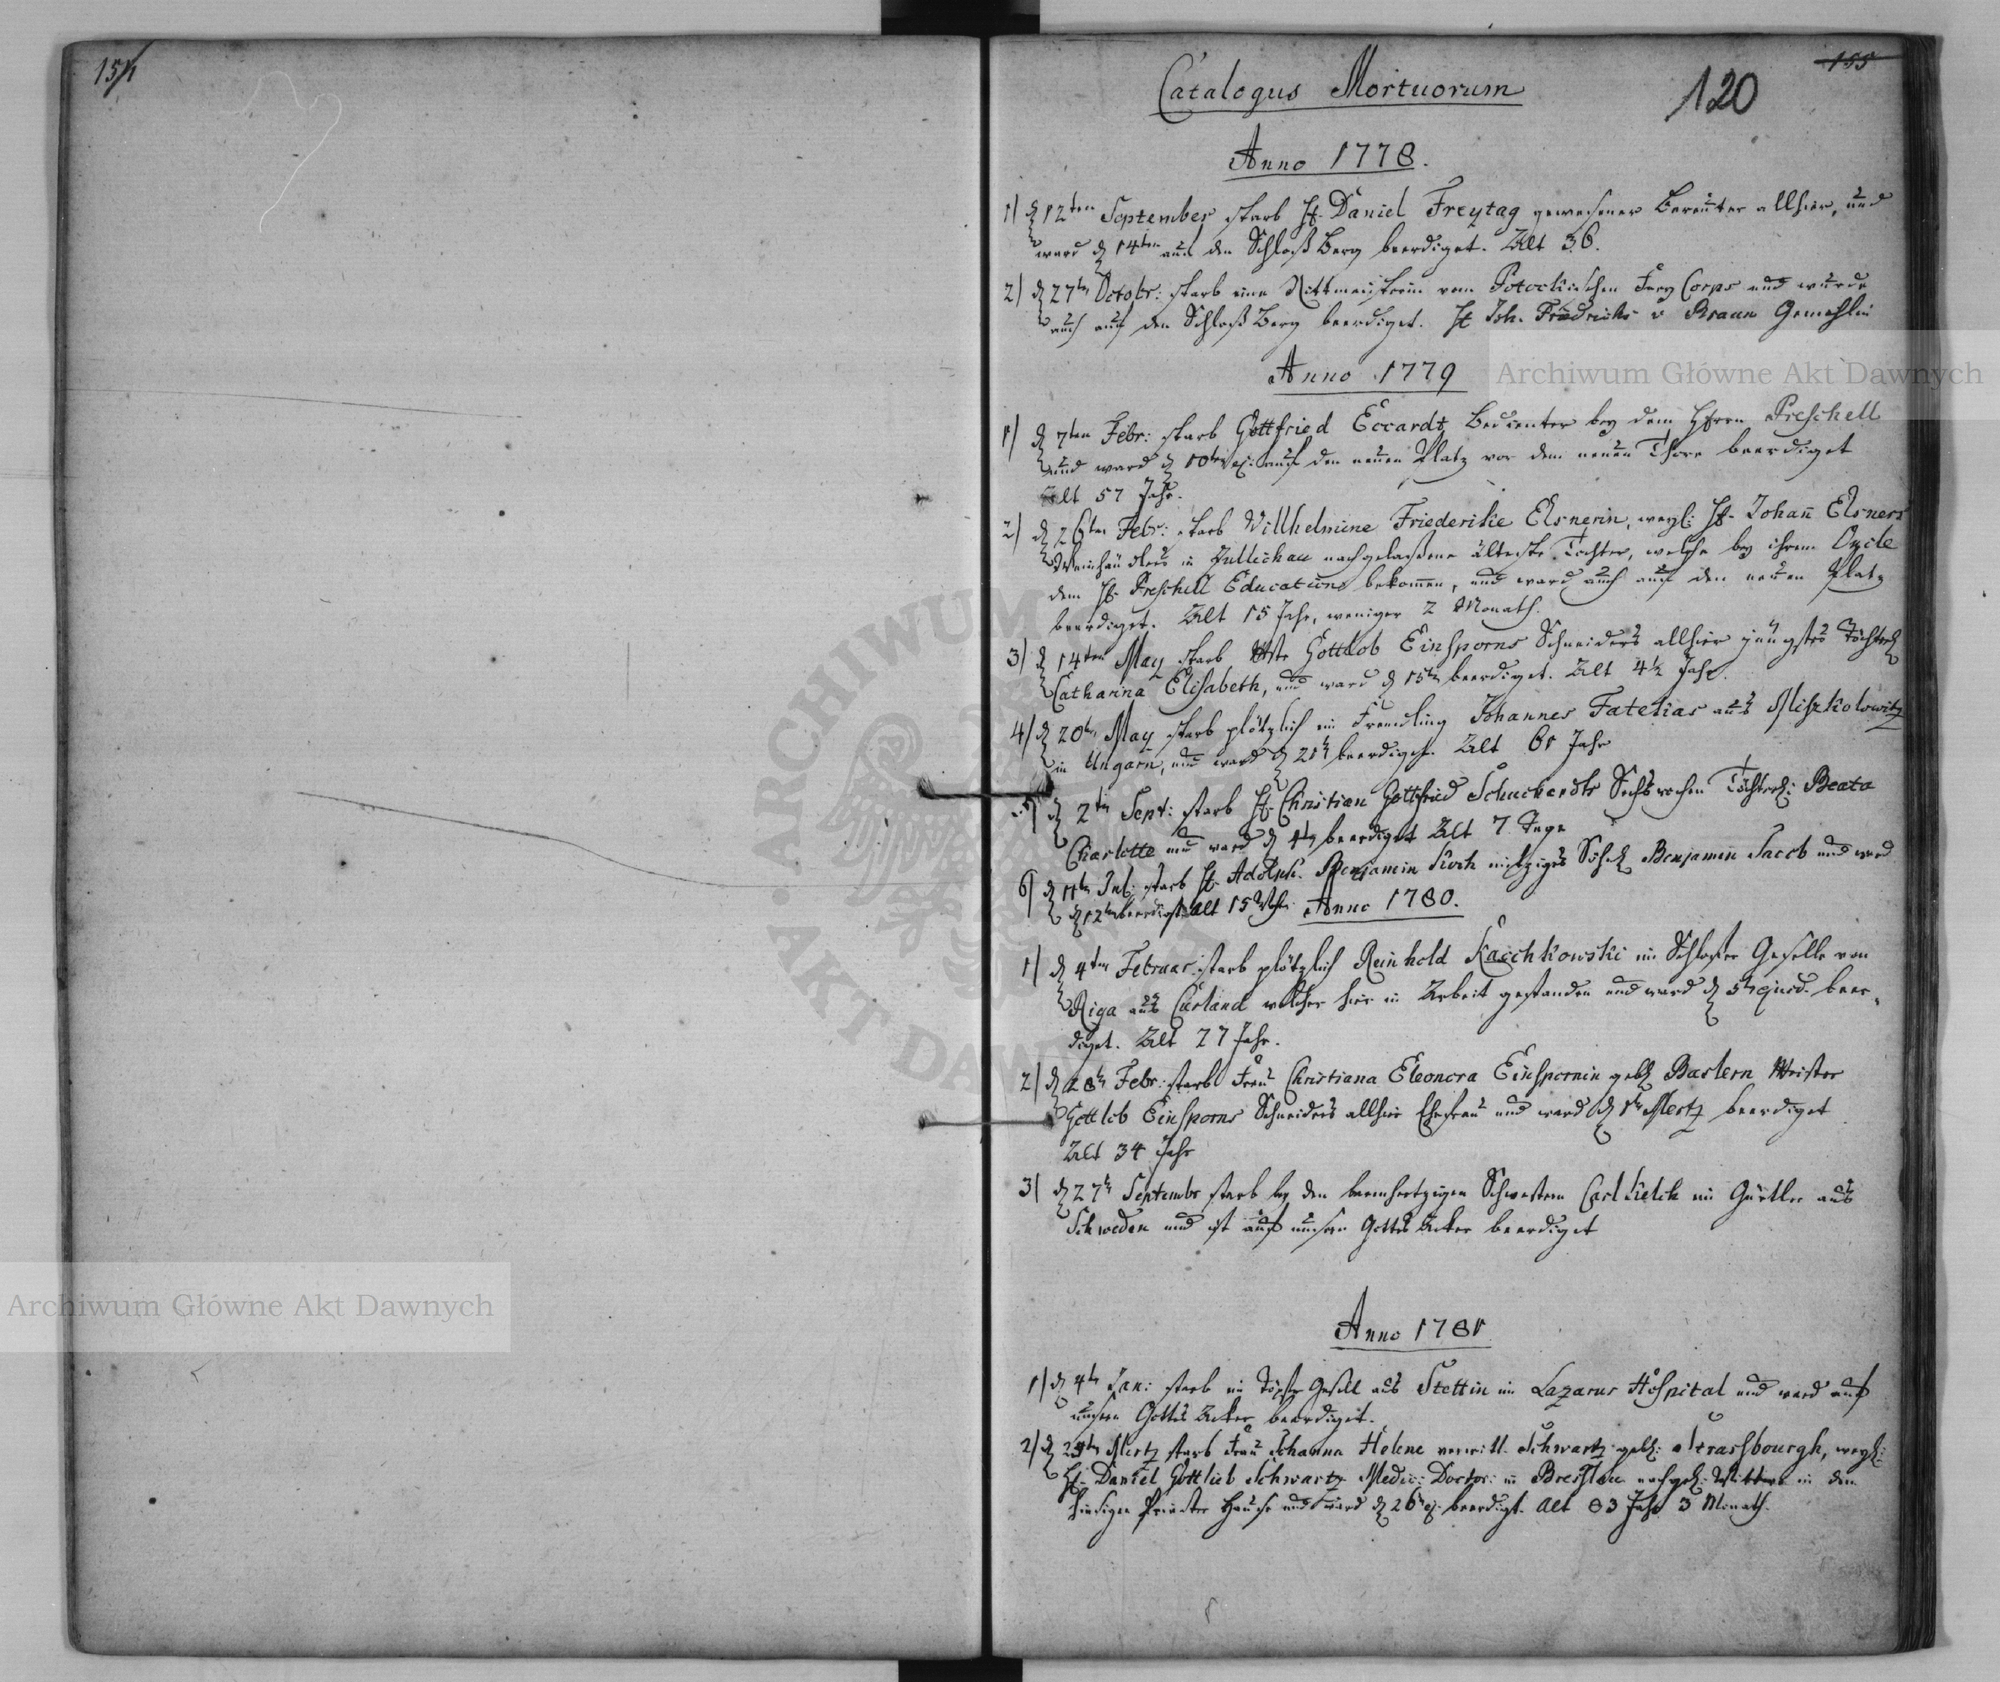 154
155
120
Catalogus Mortuorum
Anno 1778.
1) d 12ten September starb H. Daniel Freytag gewesener Bereuter allhier, und
ward d 14ten auf den Schloß Berg beerdiget. Alt 36.
2) d 27ten Octobr: starb eine Rittmeisterin vom Potockischen Frey Corps und wurde
auch auf den Schloß Berg beerdiget. H Joh. Friedrichs v Braun Gemahlin
Anno 1779
Archiwum Główne Akt Dawnych
1) d 7ten Febr: starb Gottfried Eccardt Bedienter bey dem Herrn Preschell
und ward d 10ten ej: auf den neuen Platz vor dem neuen Thore beerdiget
Alt 57 Jahr.
2) d 26ten Febr: starb Willhelmine Friederike Elsnerin, weyl: H. Johañ Elsners
Weinhändlers in Züllichau nachgelaßene älteste Tochter, welche bey ihrem Oncle
dem H. Preschell Education bekommen, und ward auch auf den neuen Platz
beerdiget. Alt 15 Jahr, weniger 2 Monath.
3) d 14ten May starb Mstr Gottlob Einsporns Schneiders allhier jüngstes Töchterl
Catharina Elisabeth, und ward d 15ten beerdiget. Alt 4½ Jahr.
4) d 20ten May starb plötzlich ein Fremdling Johannes Fatekias aus Miszkolowitz
in Ungarn, und ward d 21ten beerdiget. Alt 61 Jahr
5) d 2ten Sept: starb H. Christian Gottfried Schuchardts Töchterl: Beata
Charlotte und ward d 4ten beerdiget Alt 7 Tage
6) d 11ten starb H. Adolph. Benjamin Koch einziges Söhnl Benjamin Jacob und ward
d 12ten beerdigt Alt 15 Woch:
Anno 1780.
1) d 4ten Februar: starb plötzlich Reinhold Kaschkowski ein Schloßer Geselle von
Riga aus Curland welcher hier in Arbeit gestanden und ward d 5ten ejusd. beer-
diget. Alt 27 Jahr.
2) d 28ten Febr: starb Frau Christiana Eleonora Einspornin geb Bastern Meister
Gottlob Einsporns Schneiders allhier Ehefrau und ward d 1ten Mertz beerdiget
Alt 34 Jahr
3) d 27ten Septembr starb bey den barmhertzigen Schwestern Carl Kelch ein Gürtler aus
Schweden und ist auf unsern Gottes Acker beerdiget
Archiwum Główne Akt Dawnych
Anno 1781
1) d 4ten Jan: starb ein Töpfer Gesell aus Stettin im Lazarus Hospital und ward auf
unsern Gottes Acker beerdiget.
2) d Mertz starb Frau Johanna Helene verwitt. Schwartz geb: Strasbourgh, weyl:
H. Daniel Gottlieb Schwartz Medic: Doctor: in Breslau nachgel: Wittwe in dem
hiesigen Priester Hause und ward d 26ten ej: beerdigt. Alt 83 Jahr 3 Monath.
ARCHIWUM
AKT DAWNYCH